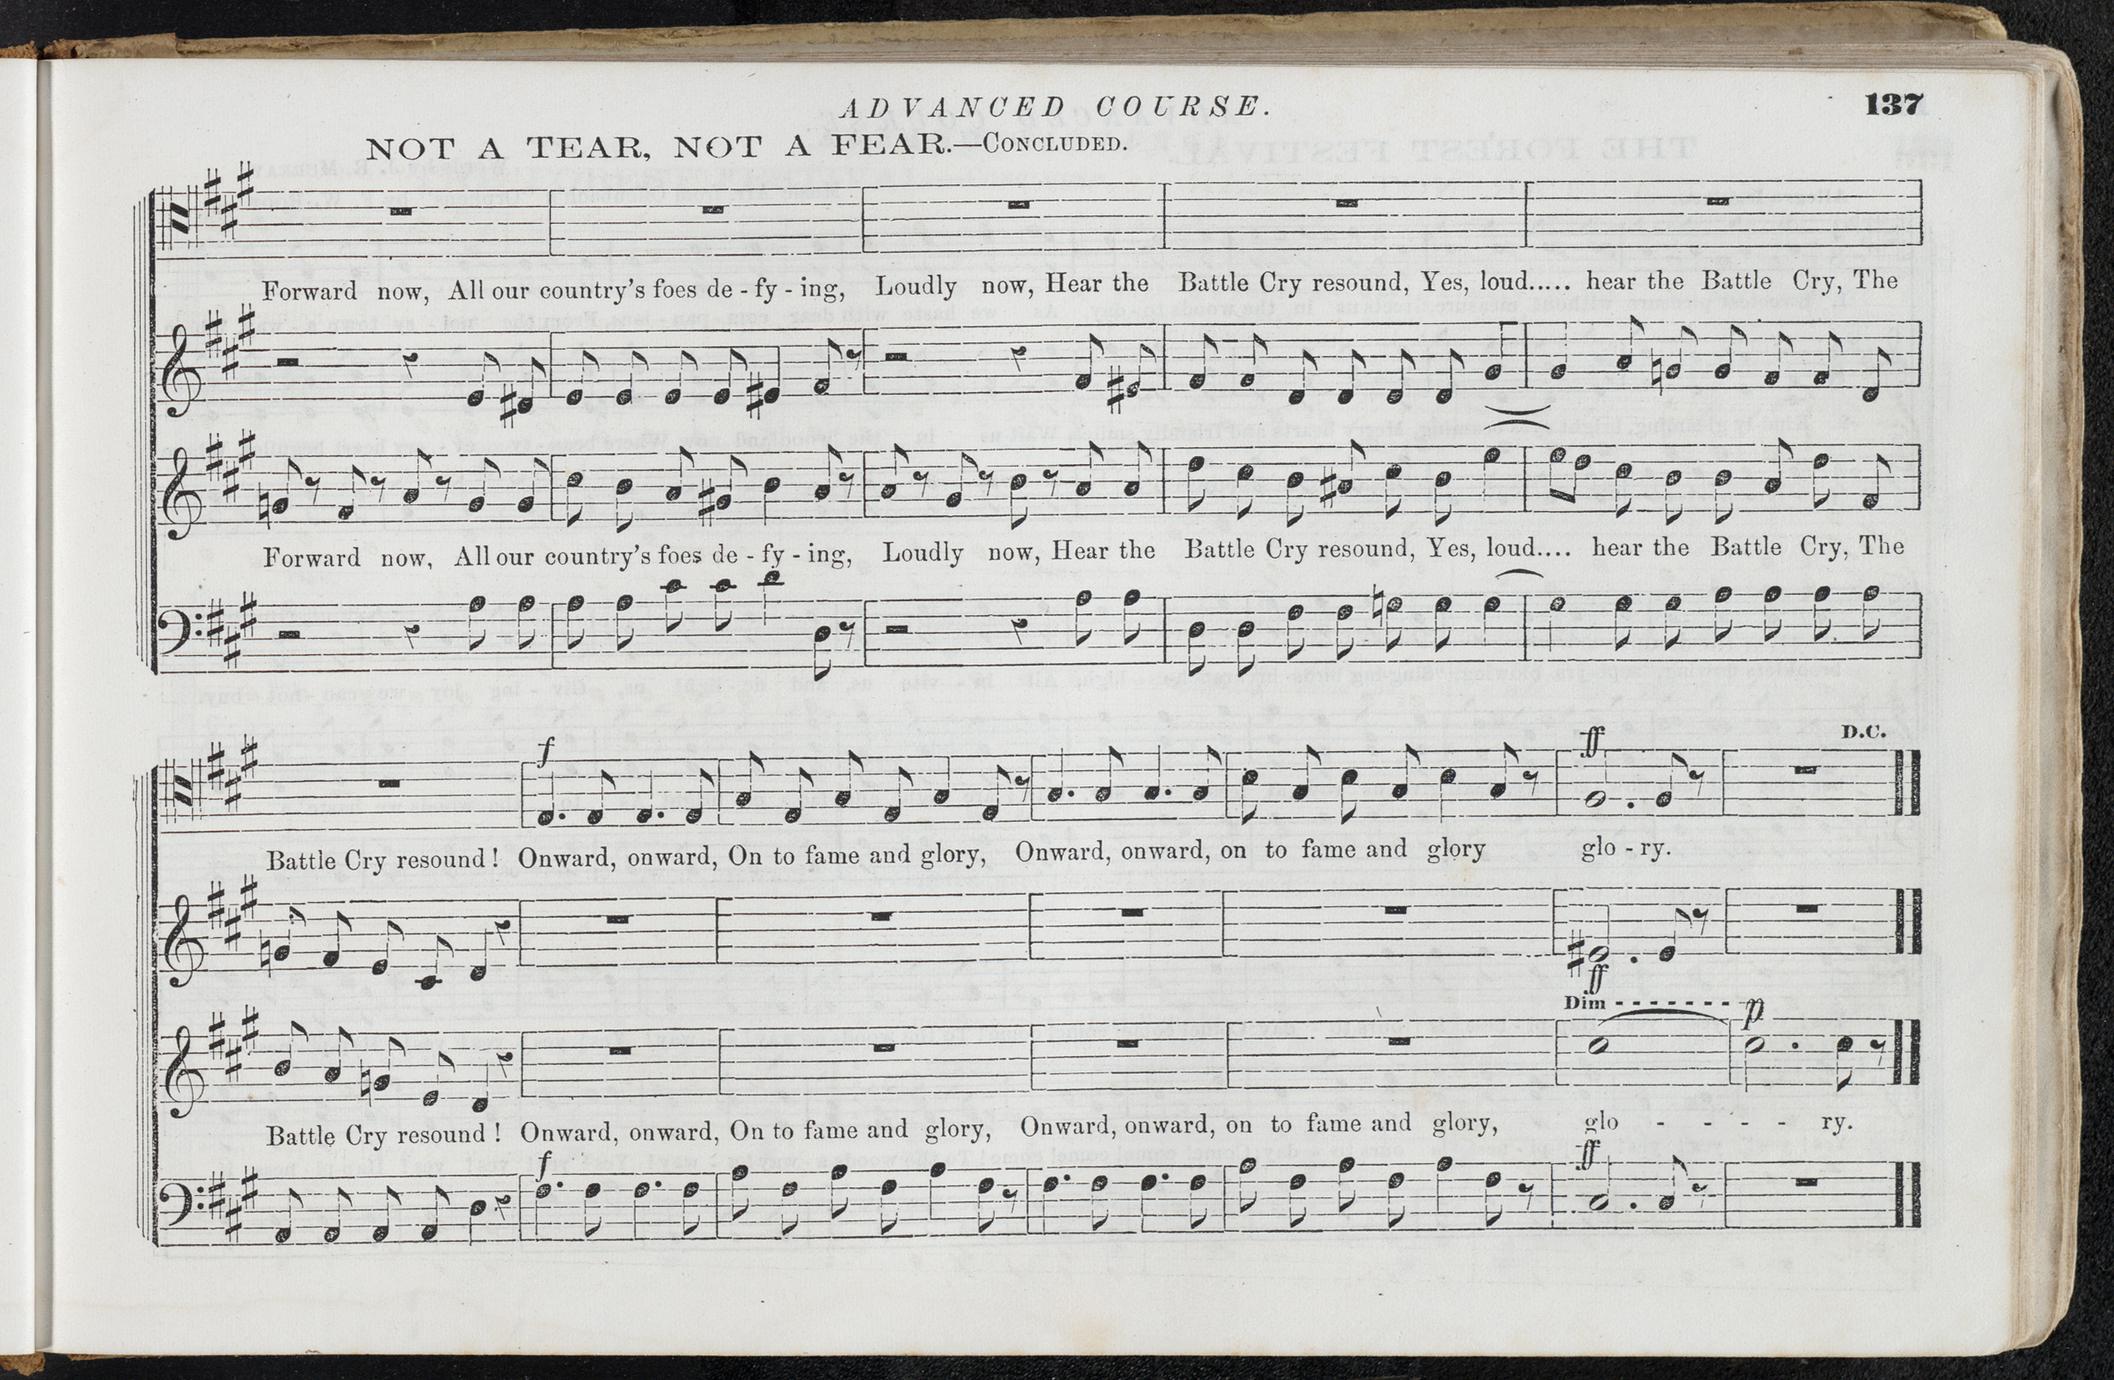 ADVANCED COURSE.
137
NOT A TEAR, NOT A FEAR.—CONCLUDED.
Forward now, All our country's foes de - fy - ing, Loudly now, Hear the Battle Cry resound, Yes, loud..... hear the Battle Cry, The
Forward now, All our country's foes de - fy - ing, Loudly now, Hear the Battle Cry resound, Yes, loud.... hear the Battle Cry, The
f
ff
D.C.
Battle Cry resound! Onward, onward, On to fame and glory, Onward, onward, on to fame and glory glo - ry.
ff
Dim - - - - - - - - p
Battle Cry resound! Onward, onward, On to fame and glory, Onward, onward, on to fame and glory, glo - - - - ry.
f
ff